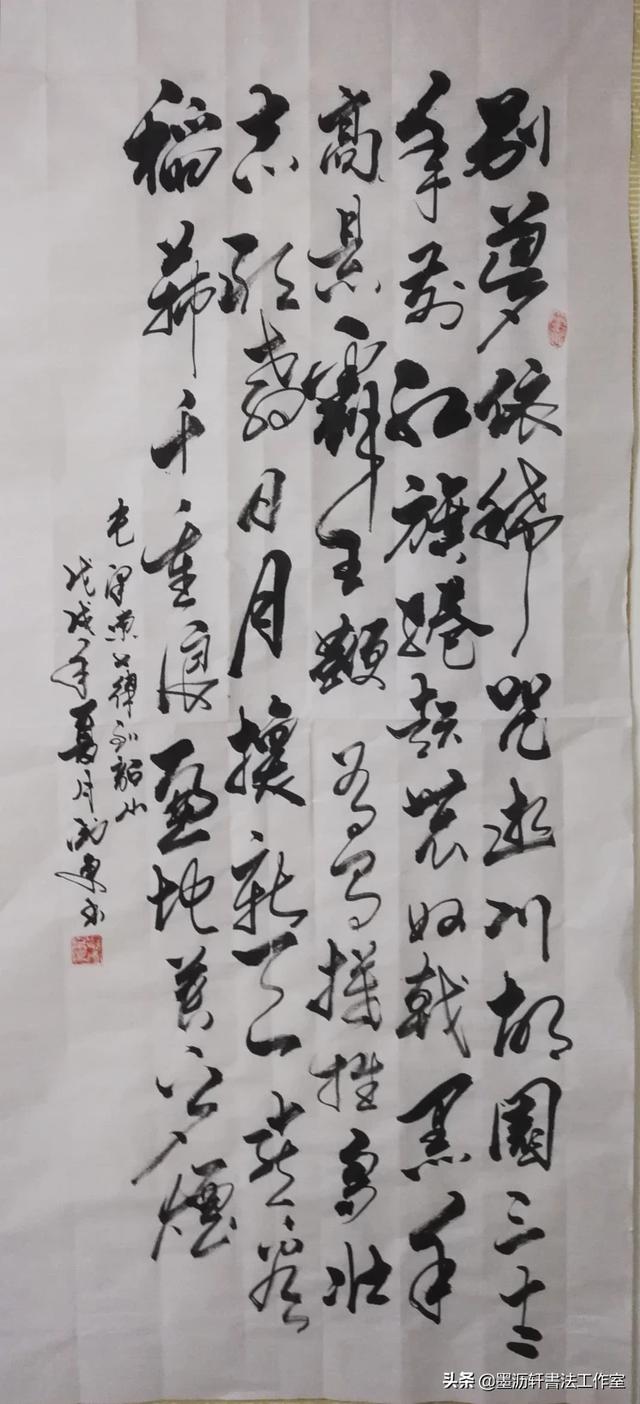 别夢依稀咒逝川故園三十二
年前红旗捲起農奴戟黑手
高悬霸主鞭为有犧牲多壮
志敢教日月換新天喜看
稻菽千重浪遍地英下夕煙
毛泽東七律到韶山
戊戌年夏月東书
头条 @墨沥轩書法工作室